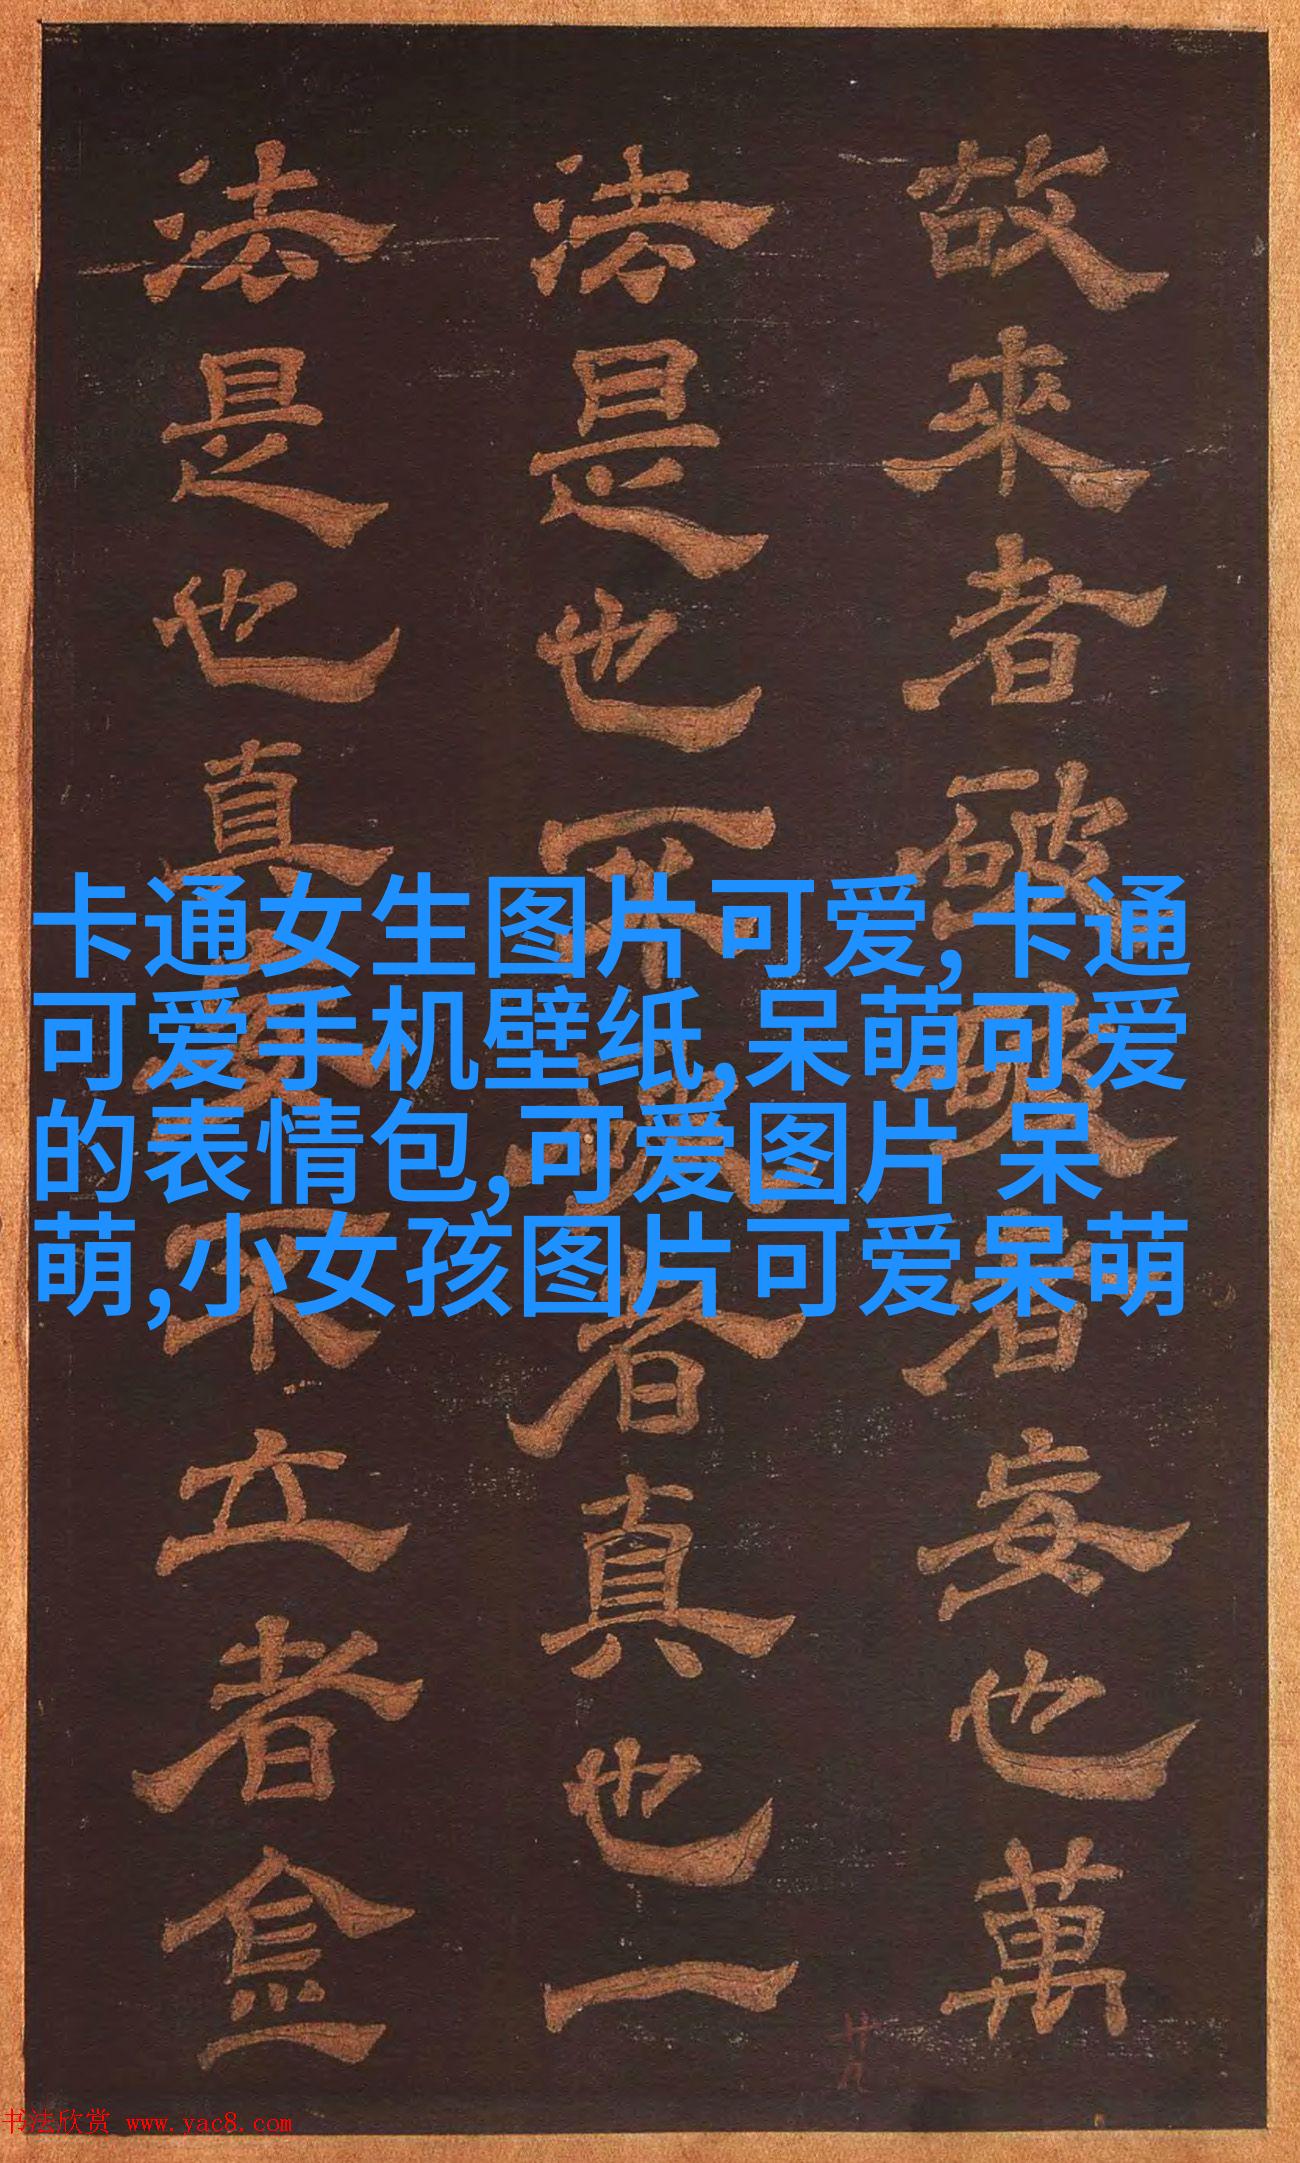 故來者破破者妄也萬
法是也不破者真也一
法是也真妄不立者
卡通女生图片可爱,卡通
可爱手机壁纸,呆萌可爱
的表情包,可爱图片 呆
萌,小女孩图片可爱呆萌
廿九
书法欣赏 www.yac8.com